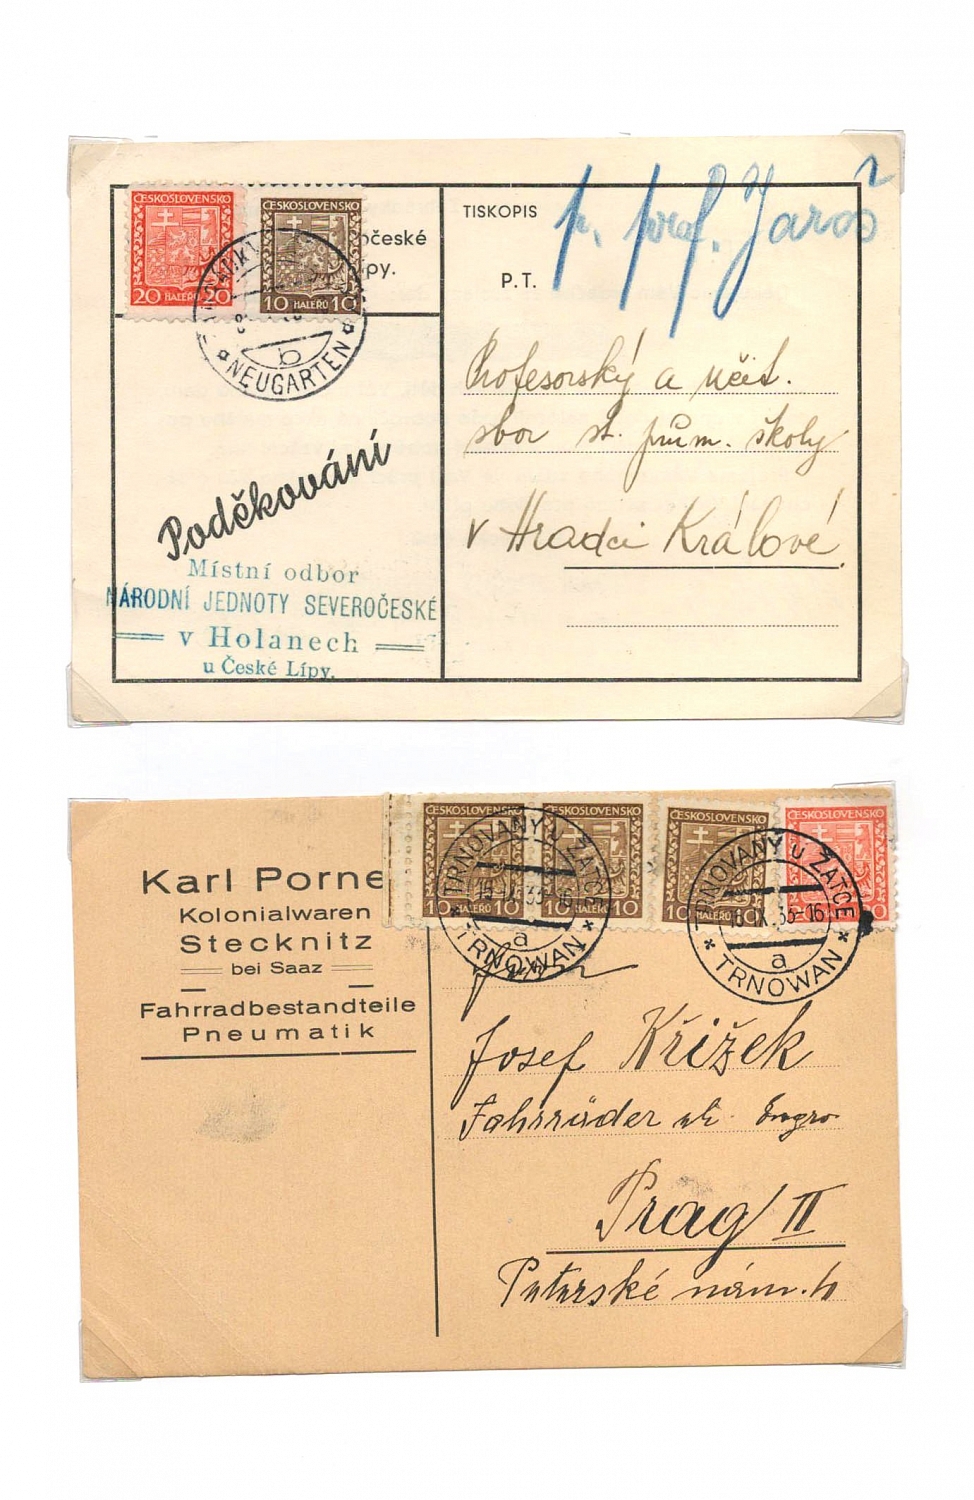 ČESKOSLOVENSKO
20 HALÉŘŮ 20
ČESKOSLOVENSKO
10 HALÉŘŮ 10
očeské
ípy.
b
NEUGARTEN
Poděkování
Místní odbor
NÁRODNÍ JEDNOTY SEVEROČESKÉ
v Holanech
u České Lípy.
TISKOPIS
P.T.
p. prof. Jaroš
Profesorský a učit.
sbor st. prům. školy
v Hradci Králové.
Karl Porne
Kolonialwaren
Stecknitz
bei Saaz
Fahrradbestandteile
Pneumatik
ČESKOSLOVENSKO
10 HALÉŘŮ 10
ČESKOSLOVENSKO
10
ČESKOSLOVENSKO
10 HALÉŘŮ
ČESKOSLOVENSKO
TRNOVANY u ŽATCE
a
TRNOWAN
TRNOVANY u ŽATCE
16.IX.35-16
a
TRNOWAN
Josef Křižek
Fahrräder en Engro
Prag II
nám.